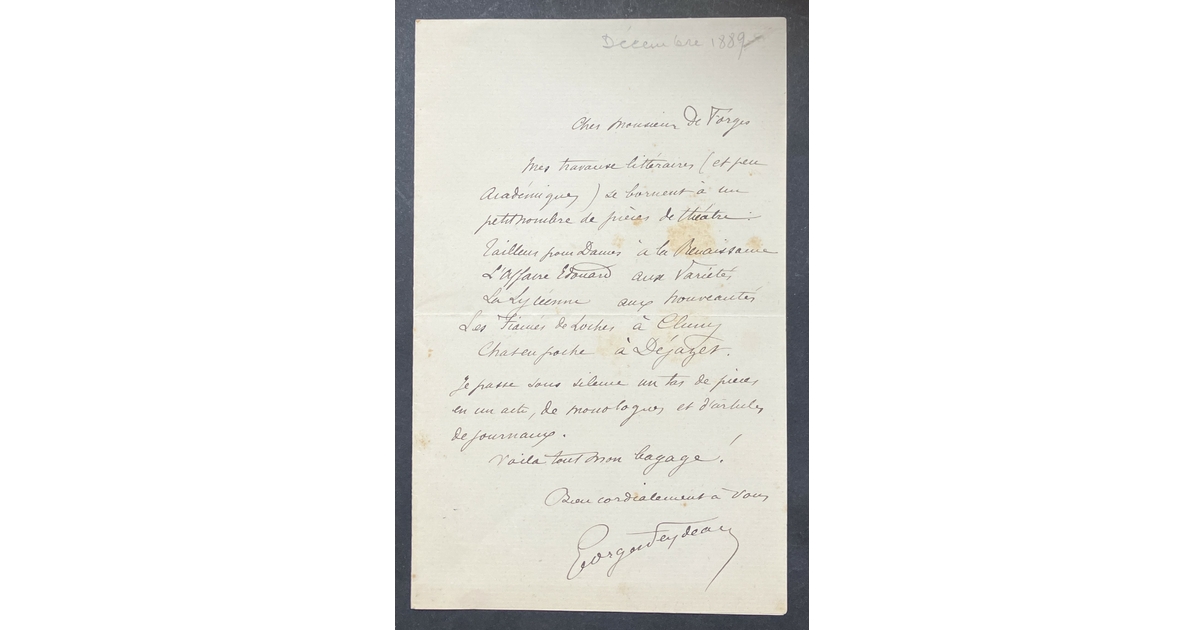 Décembre 1889
Cher Monsieur De Forges
Mes travaux littéraires (et peu
Académiques) se bornent à un
petit nombre de pièces de théatre :
Tailleur pour Dames à la Renaissance
L'Affaire Edouard aux Variétés
La Lycéenne aux Nouveautés
Les Fiancés de Loches à Cluny
Chat en poche à Déjazet.
Je passe sous silence un tas de pièces
en un acte, de monologues et d'articles
de journaux.
Voilà tout mon bagage !
Bien cordialement à vous
Georges Feydeau